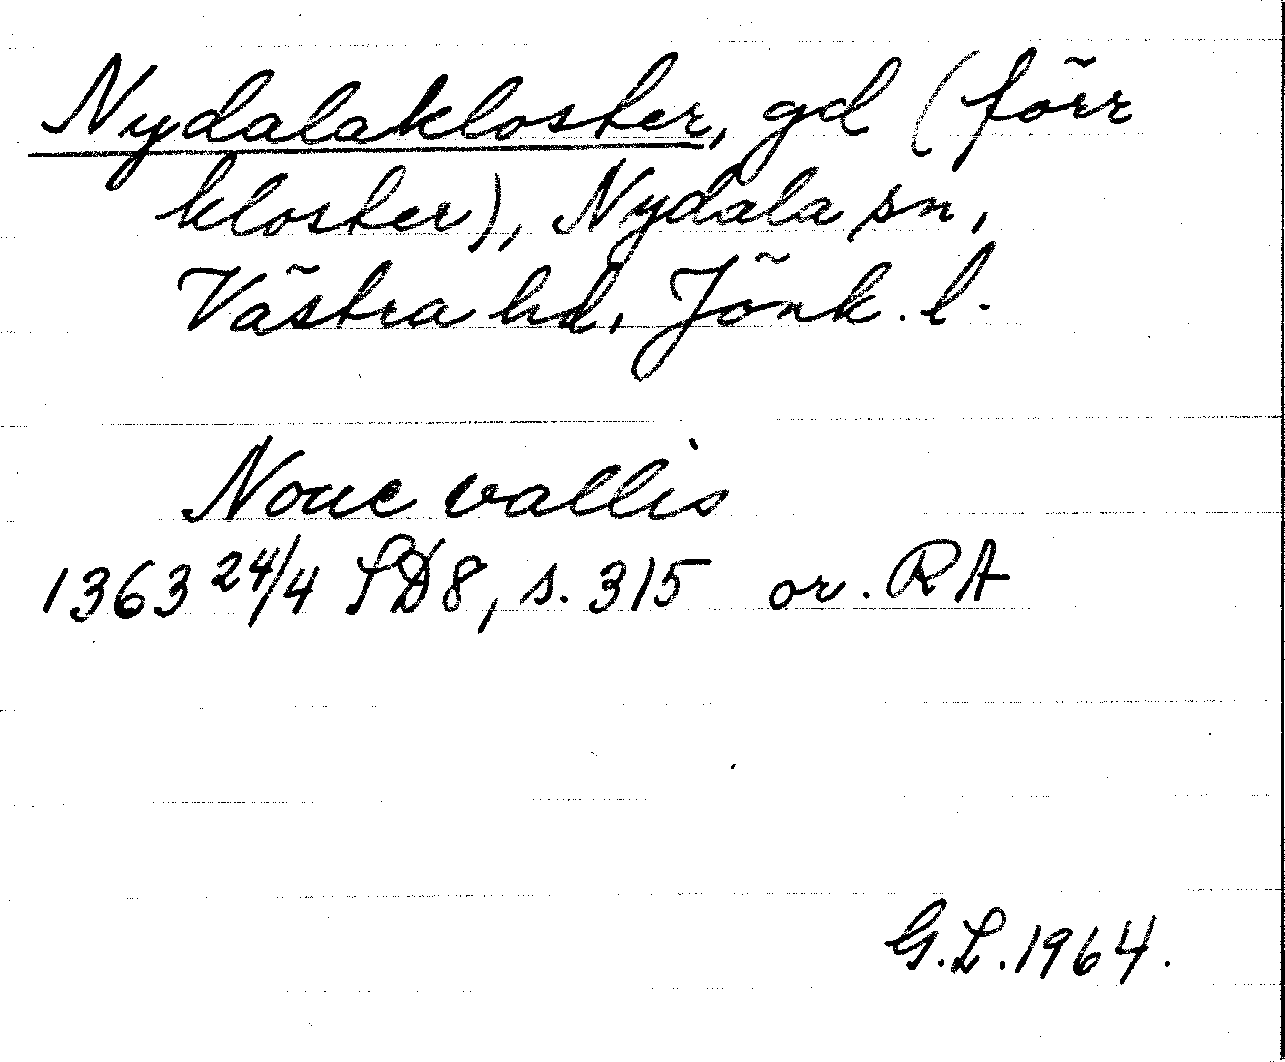 Nydalakloster, gd (förr
kloster), Nydala sn,
Västra hd, Jönk. l.
Noue vallis
1363 24/4 SD8, s. 315 or. RA
G.L. 1964.